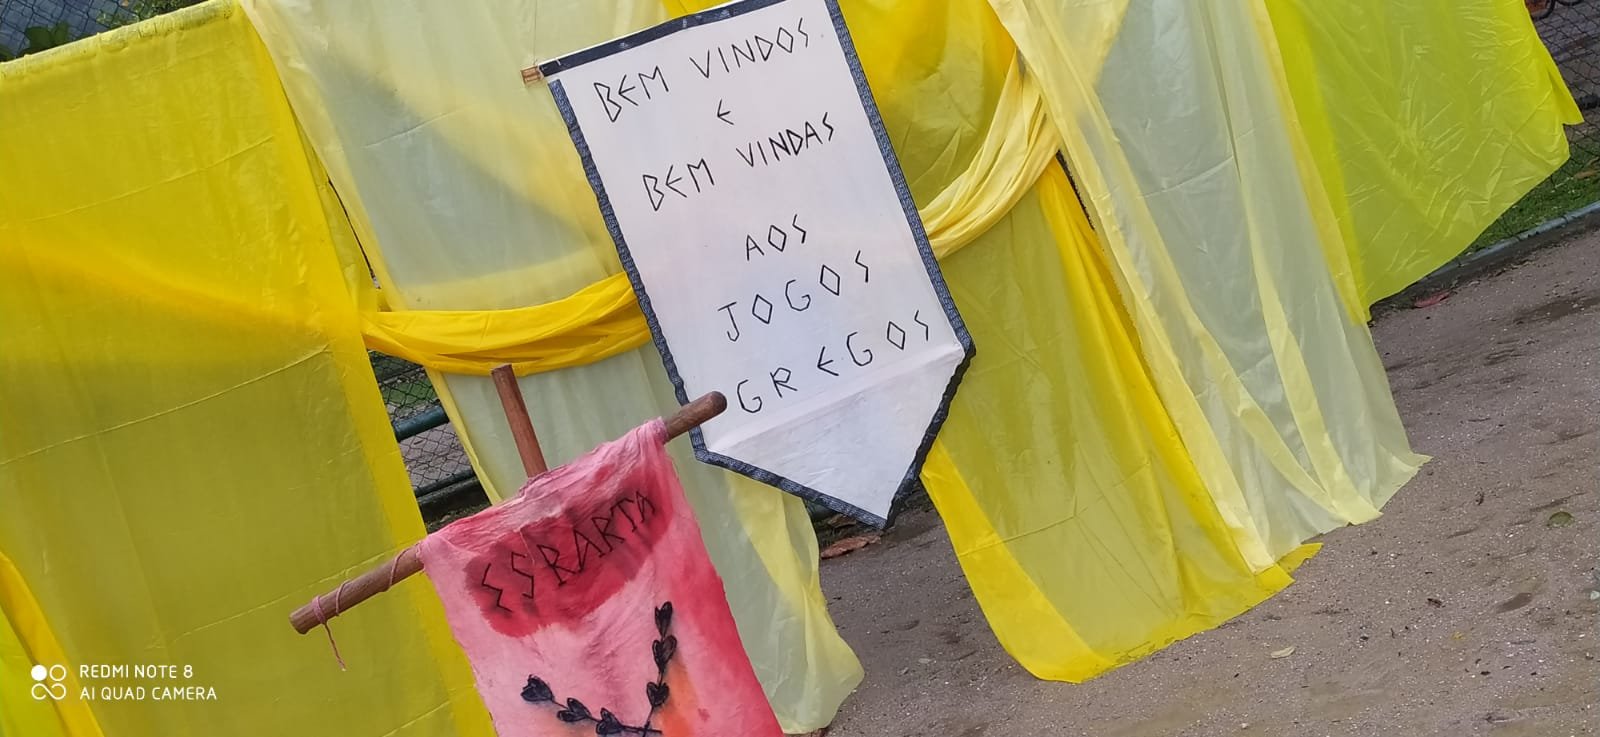 BEM VINDOS
E
BEM VINDAS
AOS
JOGOS
GREGOS
ESPARTA
REDMI NOTE 8
AI QUAD CAMERA